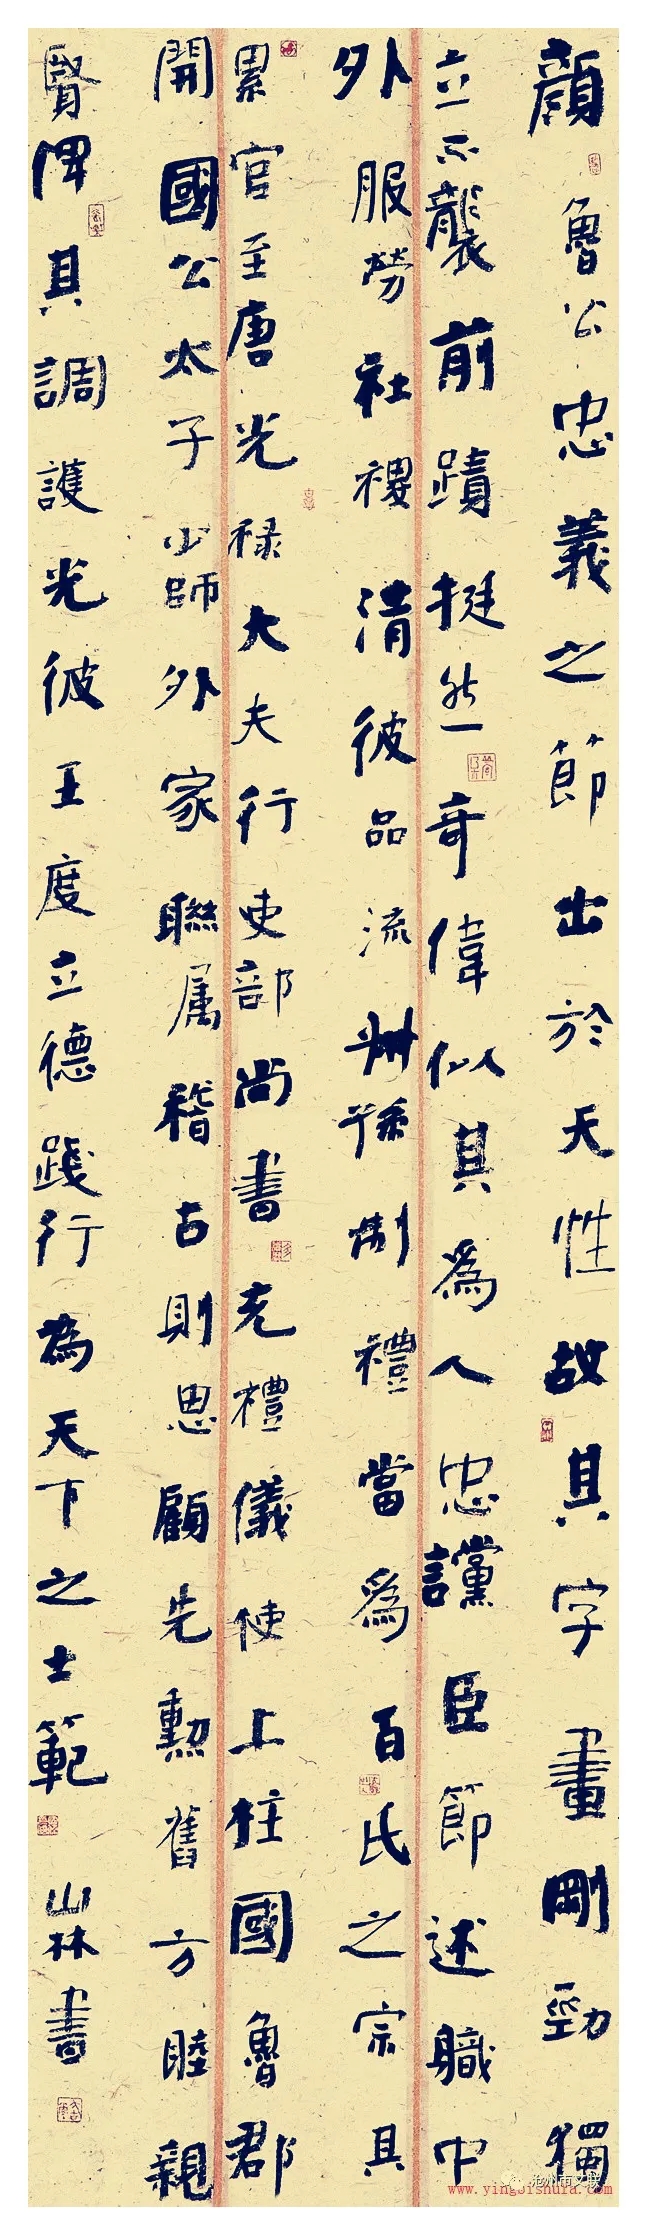 顏魯公忠義之節出於天性故其字畫剛勁獨
立不襲前蹟挺然奇偉似其為人忠讜臣節述職中
外服勞社稷清彼品流叔孫制禮當為百氏之宗其
累官至唐光禄大夫行吏部尚書充禮儀使上柱國魯郡
開國公太子少師外家聯属稽古則思顧先勳舊方睦親
賢俾其調護光彼王度立德踐行為天下之士範
山林書
沧州市文联
www.yingbishufa.com